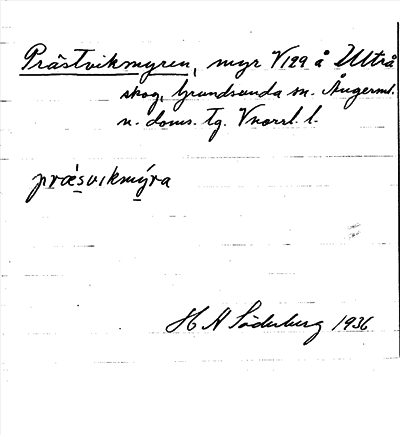 Prästvikmyren, myr V129 å Ultrå
skog, Grundsunda sn. Ångerml.
n. doms. tg. Vnorrl. l.
præsvikmýra
H A Söderberg 1936